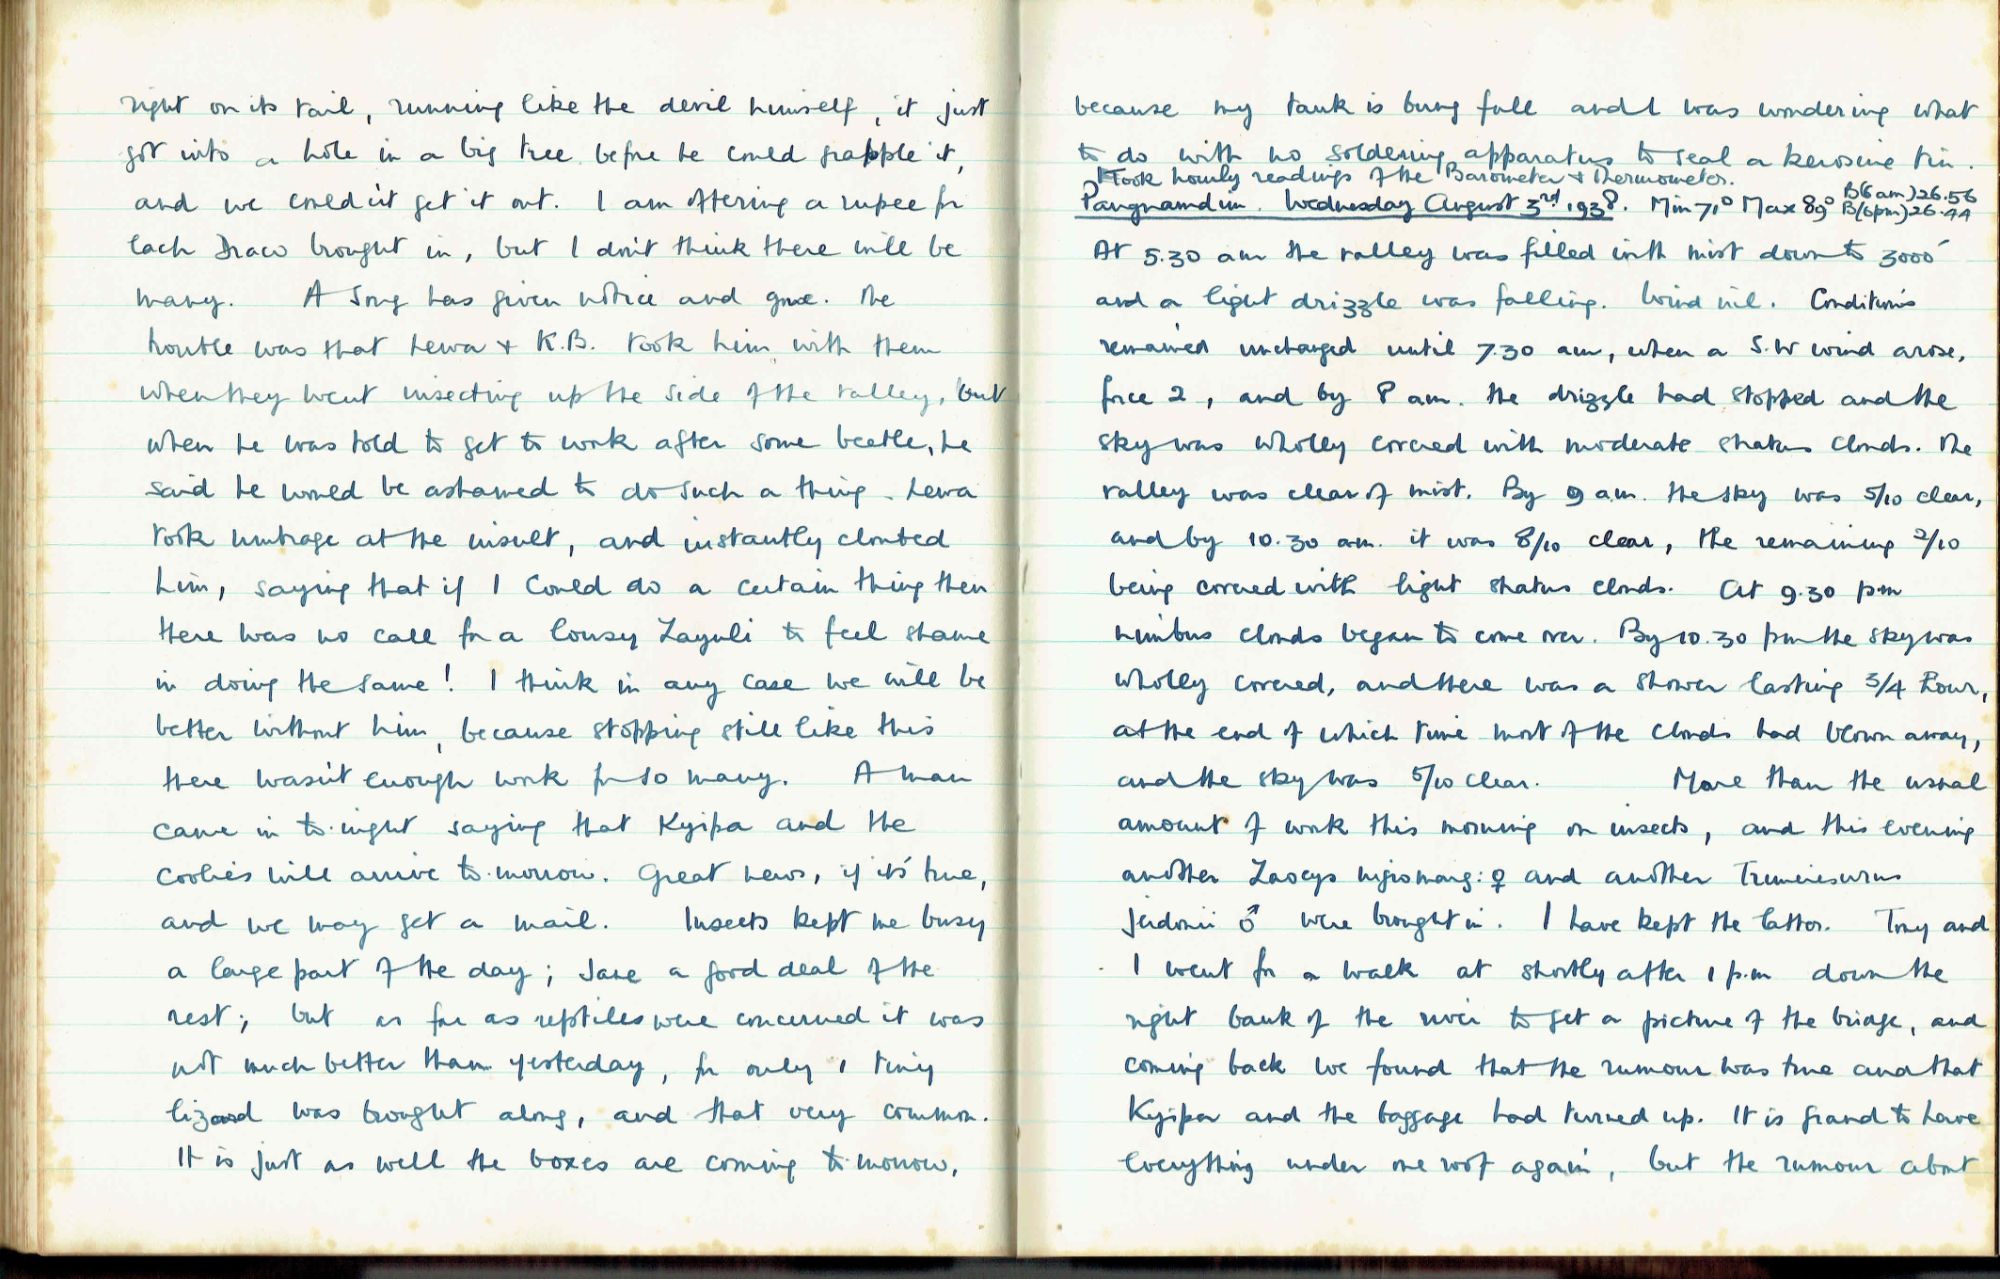 right on its tail, running like the devil himself, it just
got into a hole in a big tree before he could grapple it,
and we couldn't get it out. I am offering a rupee for
each Draco brought in, but I don't think there will be
many. A Song has given notice and gone. The
trouble was that Lewa + K.B. took him with them
when they went insecting up the side of the valley, but
when he was told to get to work after some beetle, he
said he would be ashamed to do such a thing. Lewa
took umbrage at the insult, and instantly clouted
him, saying that if I could do a certain thing then
there was no call for a lousy Zayuli to feel shame
in doing the same! I think in any case we will be
better without him, because stopping still like this
there wasn't enough work for so many. A man
came in to-night saying that Kyipa and the
coolies will arrive to-morrow. Great news, if it's true,
and we may get a mail. Insects kept me busy
a large part of the day; Jane a good deal of the
rest; but as far as reptiles were concerned it was
not much better than yesterday, for only 1 tiny
lizard was brought along, and that very common.
It is just as well the boxes are coming to-morrow,
because my tank is bung full and I was wondering what
to do with no soldering apparatus to seal a kerosine tin.
Took hourly readings of the Barometer + Thermometer.
Pangnamdim. Wednesday August 3rd 1938. Min 71° Max 89° B(6am)26.56
B(6pm)26.44
At 5.30 am the valley was filled with mist down to 3000'
and a light drizzle was falling. Wind nil. Conditions
remained unchanged until 7.30 am, when a S.W wind arose,
force 2, and by 8 am. the drizzle had stopped and the
sky was wholly covered with moderate stratus clouds. The
valley was clear of mist. By 9 am. the sky was 5/10 clear,
and by 10.30 am. it was 8/10 clear, the remaining 2/10
being covered with light stratus clouds. At 9.30 pm
nimbus clouds began to come over. By 10.30 pm the sky was
wholly covered, and there was a shower lasting 3/4 hour,
at the end of which time most of the clouds had blown away,
and the sky was 5/10 clear. More than the usual
amount of work this morning on insects, and this evening
another Zaocys nigromarg: ♀ and another Trimeresurus
jerdonii ♂ were brought in. I have kept the latter. Tony and
I went for a walk at shortly after 1 p.m down the
right bank of the river to get a picture of the bridge, and
coming back we found that the rumour was true and that
Kyipa and the baggage had turned up. It is grand to have
everything under one roof again, but the rumour about